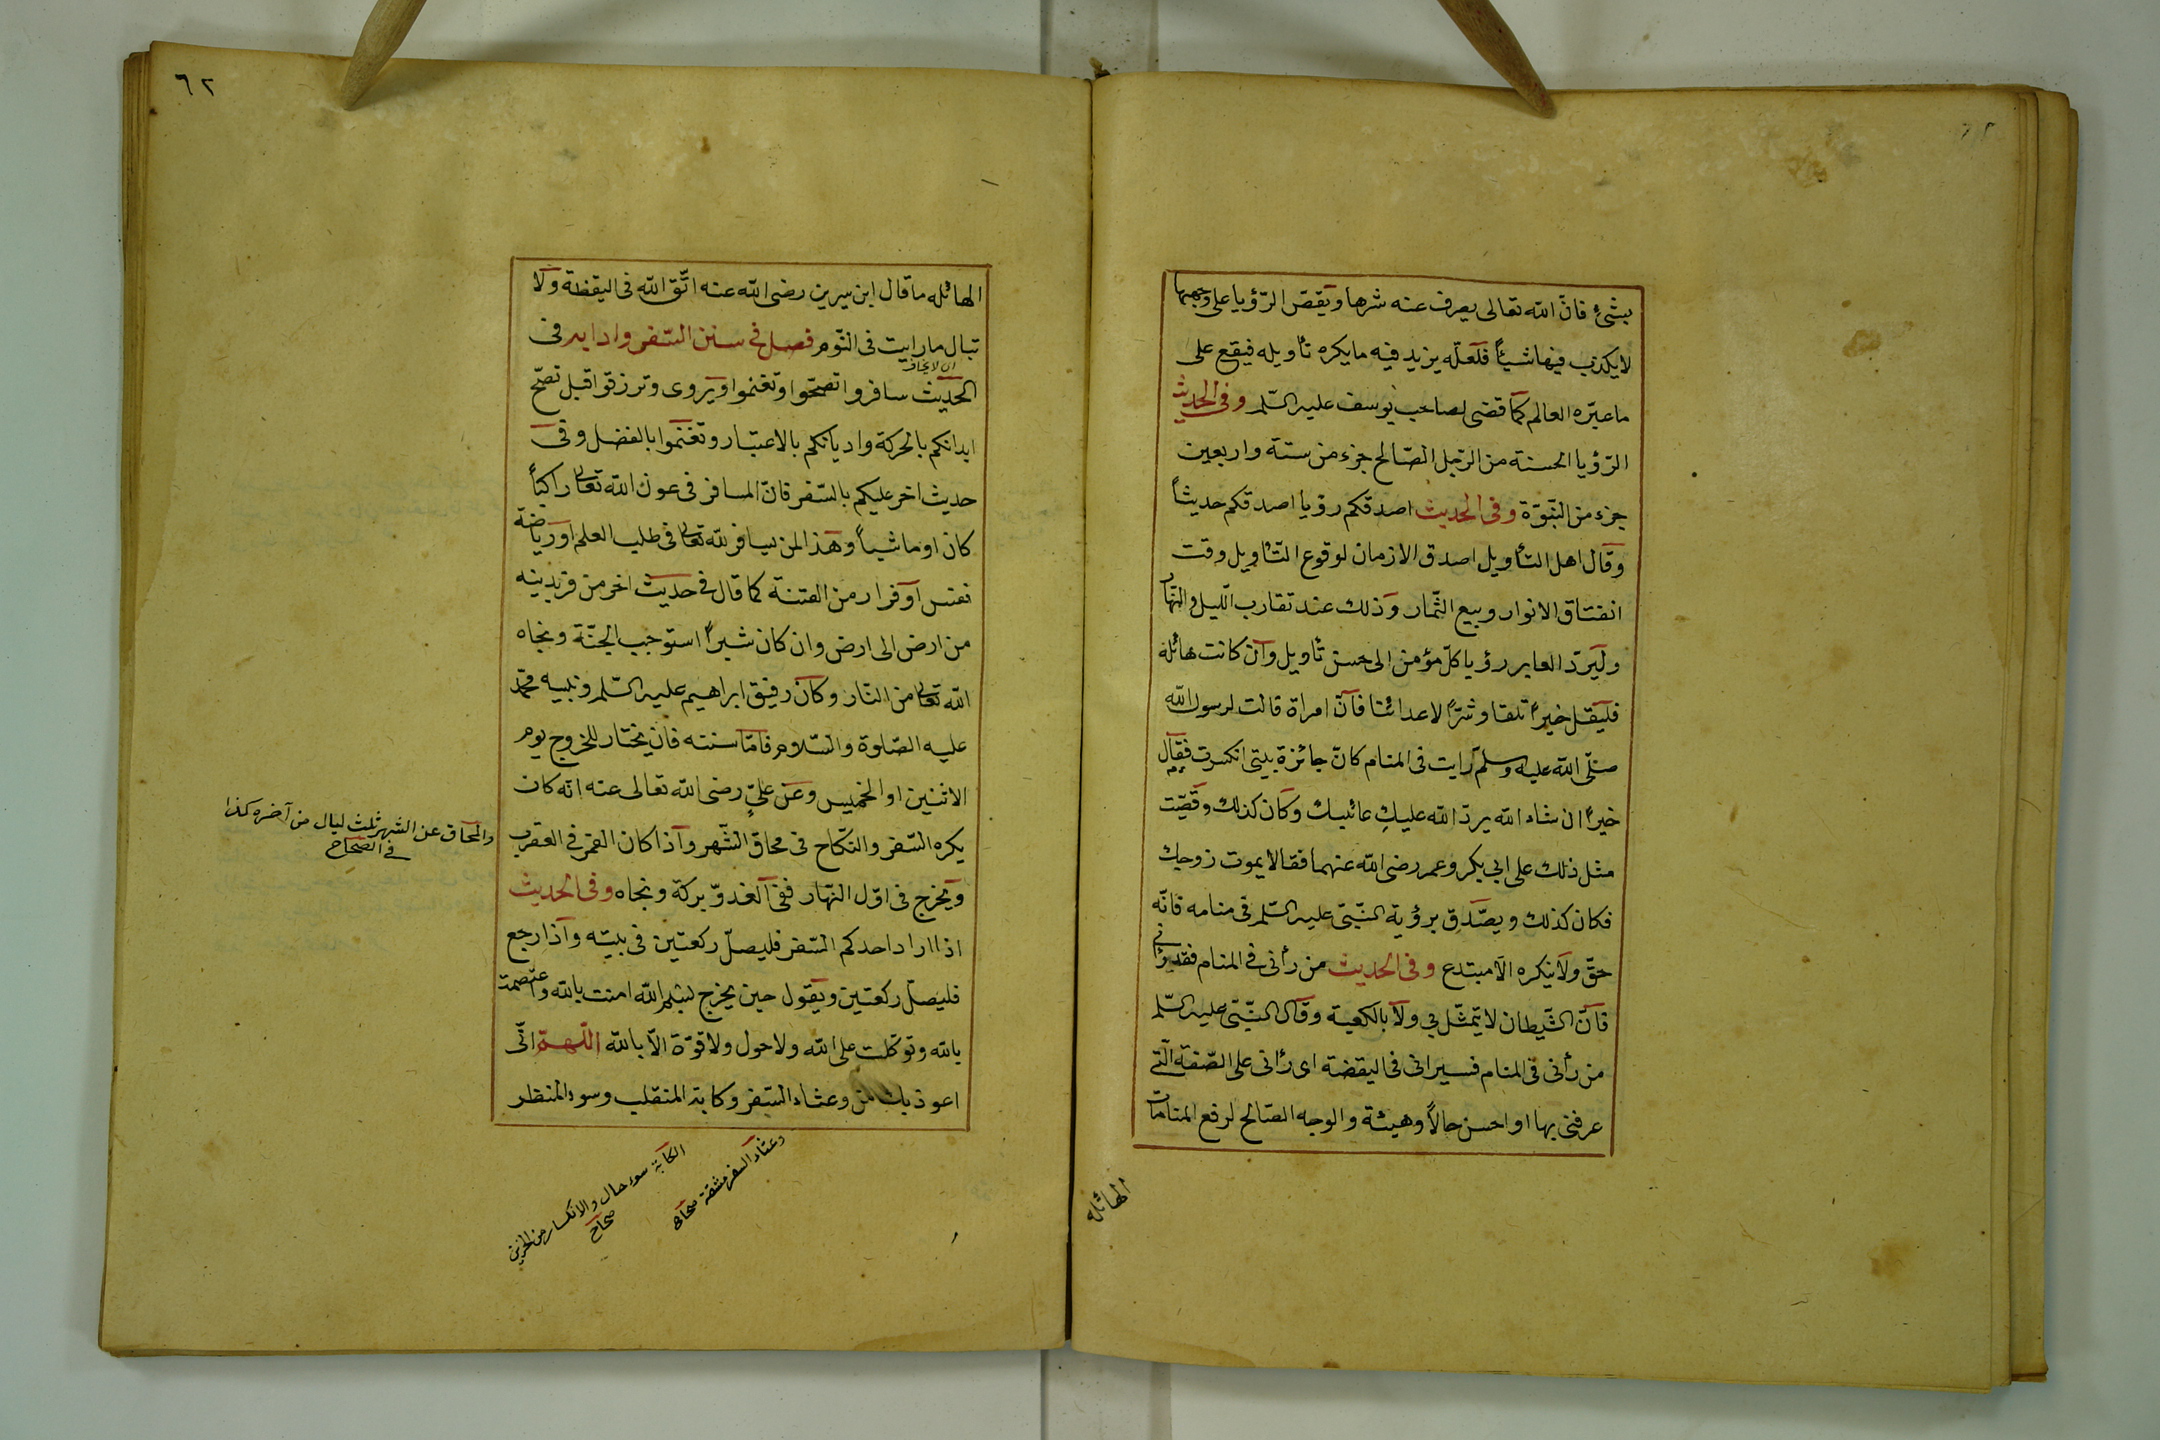 بشئ فان الله تعالى يصرف عنه شرها ويقص الرؤيا على وجهها
لا يكذب فيها شيئاً فلعله يزيد فيه ما يكره تأويله فيقع على
ما عبّره العالم كما قضى لصاحب يوسف عليه السلم وفى الحديث
الرؤيا الحسنة من الرجل الصالح جزء من ستة واربعين
جزء من النبوّة وفى الحديث اصدقكم رؤيا اصدقكم حديثاً
وقال اهل التأويل اصدق الازمان لوقوع التأويل وقت
انفتاق الانوار وبيع الثمار وذلك عند تقارب الليل والنهار
وليردّ العابر رؤيا كلّ مؤمن الى حسن تأويل وان كانت هائلة
فليقل خيراً تلقا وشرّاً لاعدائنا فانّ امراة قالت لرسول الله
صلّى الله عليه وسلم رايت فى المنام كانّ جائزة بيتى انكسرت فقال
خيراً ان شاء الله يردّ الله عليكِ غائبك وكان كذلك وقصّت
مثل ذلك على ابى بكر وعمر رضى الله عنهما فقالا يموت زوجك
فكان كذلك ويصّدق برؤية النبىّ عليه السلم فى منامه فانّه
حقّ ولا ينكره الا مبتدع وفى الحديث من رأنى فى المنام فقد رأنى
فانّ الشيطان لا يتمثل بى ولا بالكعبة وقال النبىّ عليه السلم
من رأنى فى المنام فسيرانى فى اليقضة اى رأنى على الصّفة الّتى
عرفنى بها او احسن حالاً وهيئة والوجه الصّالح لرفع المنامات
الهائلة
٦٢
الهائله ما قال ابن سيرين رضى الله عنه اتّق الله فى اليقظة ولا
تبال ما رايت فى النّوم فصل فى سنن السّفر وادابه فى
ان لا يخاف
الحديث سافروا تصحّوا وتغنموا ويروى وترزقوا قبل تصحّ
ابدانكم بالحركة واديانكم بالاعتبار وتغنموا بالفضل وفى
حديث اخر عليكم بالسّفر فانّ المسافر فى عون الله تعالى راكباً
كان او ماشياً وهذا لمن سافر لله تعالى فى طلب العلم او رياضة
نفس او فرار من الفتنة كما قال فى حديث اخر من فرّ بدينه
من ارض الى ارض وان كان شبراً استوجب الجنّة ونجاه
الله تعالى من النّار وكان رفيق ابراهيم عليه السّلم ونبيه محمّد
عليه الصّلوة والسّلام فامّا سننه فان يختار للخروج يوم
الاثنين او الخميس وعن علىٍّ رضى الله تعالى عنه انّه كان
يكره السّفر والنّكاح فى محاق الشّهر واذا كان القمر فى العقرب
والمحاق عن الشهر ثلث ليال من آخره كذا
فى الصّحاح
ويخرج فى اوّل النّهار ففى الغدوّ بركة ونجاه وفى الحديث
اذا اراد احدكم السّفر فليصلّ ركعتين فى بيته واذا رجع
فليصلّ ركعتين ويقول حين يخرج بسْم الله امنت بالله واعتصمت
بالله وتوكّلت على الله ولا حول ولا قوّة الّا بالله اللّهمّ انّى
اعوذ بك من وعثاء السّفر وكابة المنقلب وسوء المنظر
وعثاء السفر مشقة صحاح
الكآبة سوء حال والانكسار من الحزن
صحاح